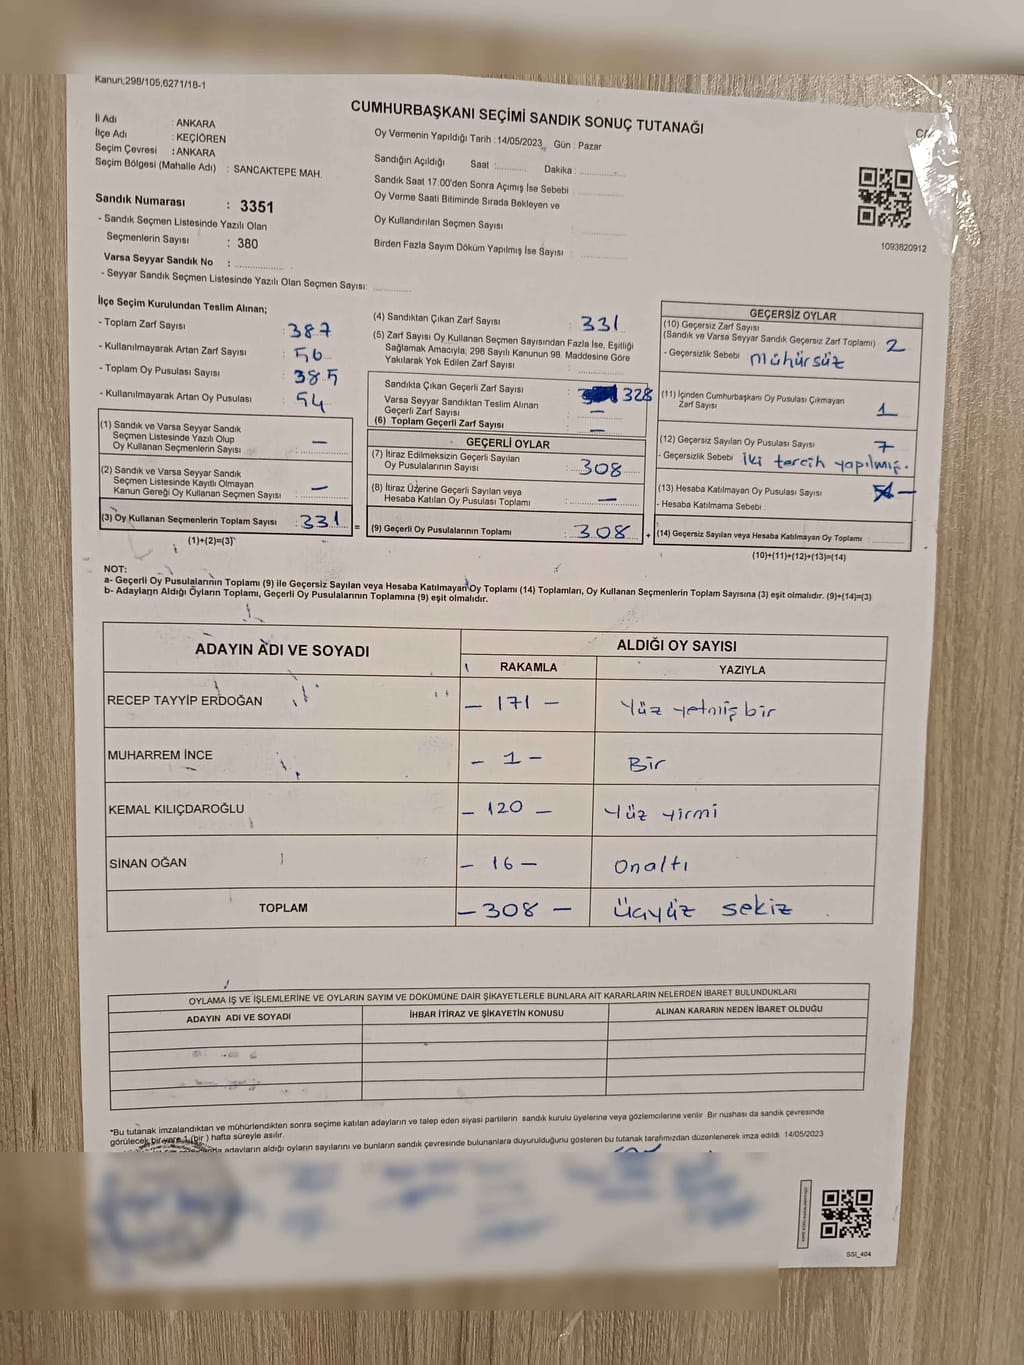 Kanun:298/105;6271/18-1
CUMHURBAŞKANI SEÇİMİ SANDIK SONUÇ TUTANAĞI
İl Adı : ANKARA
İlçe Adı : KEÇİÖREN
Seçim Çevresi : ANKARA
Seçim Bölgesi (Mahalle Adı) : SANCAKTEPE MAH.
Sandık Numarası : 3351
- Sandık Seçmen Listesinde Yazılı Olan
Seçmenlerin Sayısı : 380
Varsa Seyyar Sandık No :
- Seyyar Sandık Seçmen Listesinde Yazılı Olan Seçmen Sayısı:
Oy Vermenin Yapıldığı Tarih : 14/05/2023 Gün : Pazar
Sandığın Açıldığı Saat : Dakika :
Sandık Saat 17:00'den Sonra Açılmış İse Sebebi :
Oy Verme Saati Bitiminde Sırada Bekleyen ve
Oy Kullandırılan Seçmen Sayısı :
Birden Fazla Sayım Döküm Yapılmış İse Sayısı :
1093820912
İlçe Seçim Kurulundan Teslim Alınan;
- Toplam Zarf Sayısı : 387
- Kullanılmayarak Artan Zarf Sayısı : 56
- Toplam Oy Pusulası Sayısı : 385
- Kullanılmayarak Artan Oy Pusulası : 54
(1) Sandık ve Varsa Seyyar Sandık
Seçmen Listesinde Yazılı Olup
Oy Kullanan Seçmenlerin Sayısı : —
(2) Sandık ve Varsa Seyyar Sandık
Seçmen Listesinde Kayıtlı Olmayan
Kanun Gereği Oy Kullanan Seçmen Sayısı : —
(3) Oy Kullanan Seçmenlerin Toplam Sayısı : 331
(1)+(2)=(3)
(4) Sandıktan Çıkan Zarf Sayısı : 331
(5) Zarf Sayısı Oy Kullanan Seçmen Sayısından Fazla İse, Eşitliği
Sağlamak Amacıyla; 298 Sayılı Kanunun 98. Maddesine Göre
Yakılarak Yok Edilen Zarf Sayısı :
Sandıkta Çıkan Geçerli Zarf Sayısı : 328
Varsa Seyyar Sandıktan Teslim Alınan
Geçerli Zarf Sayısı : —
(6) Toplam Geçerli Zarf Sayısı : —
GEÇERLİ OYLAR
(7) İtiraz Edilmeksizin Geçerli Sayılan
Oy Pusulalarının Sayısı : 308
(8) İtiraz Üzerine Geçerli Sayılan veya
Hesaba Katılan Oy Pusulası Toplamı : —
= (9) Geçerli Oy Pusulalarının Toplamı : 308 +
GEÇERSİZ OYLAR
(10) Geçersiz Zarf Sayısı
(Sandık ve Varsa Seyyar Sandık Geçersiz Zarf Toplamı) 2
- Geçersizlik Sebebi : mühürsüz
(11) İçinden Cumhurbaşkanı Oy Pusulası Çıkmayan
Zarf Sayısı 1
(12) Geçersiz Sayılan Oy Pusulası Sayısı 7
- Geçersizlik Sebebi : İki tercih yapılmış.
(13) Hesaba Katılmayan Oy Pusulası Sayısı —
- Hesaba Katılmama Sebebi :
(14) Geçersiz Sayılan veya Hesaba Katılmayan Oy Toplamı :
(10)+(11)+(12)+(13)=(14)
NOT:
a- Geçerli Oy Pusulalarının Toplamı (9) ile Geçersiz Sayılan veya Hesaba Katılmayan Oy Toplamı (14) Toplamları, Oy Kullanan Seçmenlerin Toplam Sayısına (3) eşit olmalıdır. (9)+(14)=(3)
b- Adayların Aldığı Oyların Toplamı, Geçerli Oy Pusulalarının Toplamına (9) eşit olmalıdır.
ADAYIN ADI VE SOYADI
ALDIĞI OY SAYISI
RAKAMLA YAZIYLA
RECEP TAYYİP ERDOĞAN – 171 – Yüz yetmiş bir
MUHARREM İNCE – 1 – Bir
KEMAL KILIÇDAROĞLU – 120 – Yüz yirmi
SİNAN OĞAN – 16 – Onaltı
TOPLAM – 308 – Üçyüz sekiz
OYLAMA İŞ VE İŞLEMLERİNE VE OYLARIN SAYIM VE DÖKÜMÜNE DAİR ŞİKAYETLERLE BUNLARA AİT KARARLARIN NELERDEN İBARET BULUNDUKLARI
ADAYIN ADI VE SOYADI İHBAR İTİRAZ VE ŞİKAYETİN KONUSU ALINAN KARARIN NEDEN İBARET OLDUĞU
*Bu tutanak imzalandıktan ve mühürlendikten sonra seçime katılan adayların ve talep eden siyasi partilerin sandık kurulu üyelerine veya gözlemcilerine verilir. Bir nüshası da sandık çevresinde
görülecek bir yere 1 (bir) hafta süreyle asılır.
adayların aldığı oyların sayılarını ve bunların sandık çevresinde bulunanlara duyurulduğunu gösteren bu tutanak tarafımızdan düzenlenerek imza edildi. 14/05/2023
SSI_404